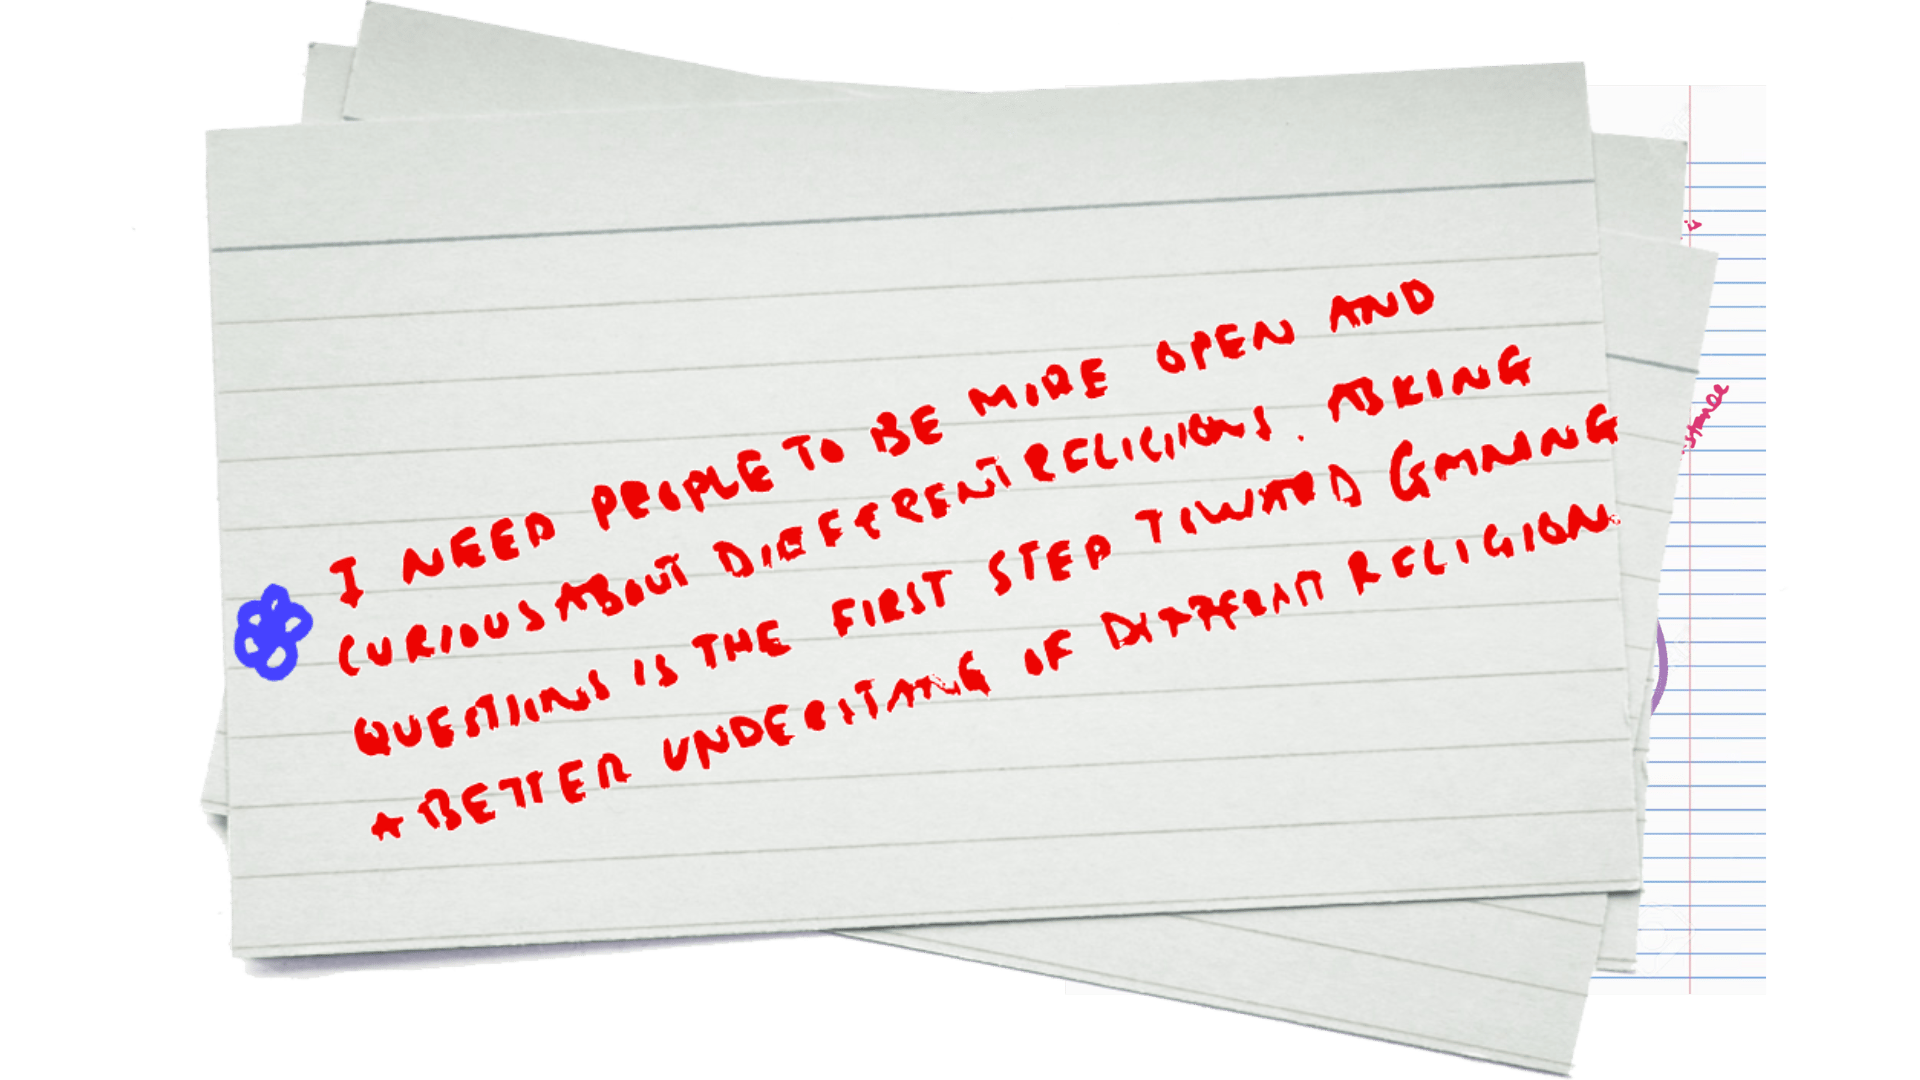 I NEED PEOPLE TO BE MORE OPEN AND
CURIOUS ABOUT DIFFERENT RELIGIONS. ASKING
QUESTIONS IS THE FIRST STEP TOWARD GAINING
A BETTER UNDERSTANG OF DIFFERENT RELIGION.
is
stance